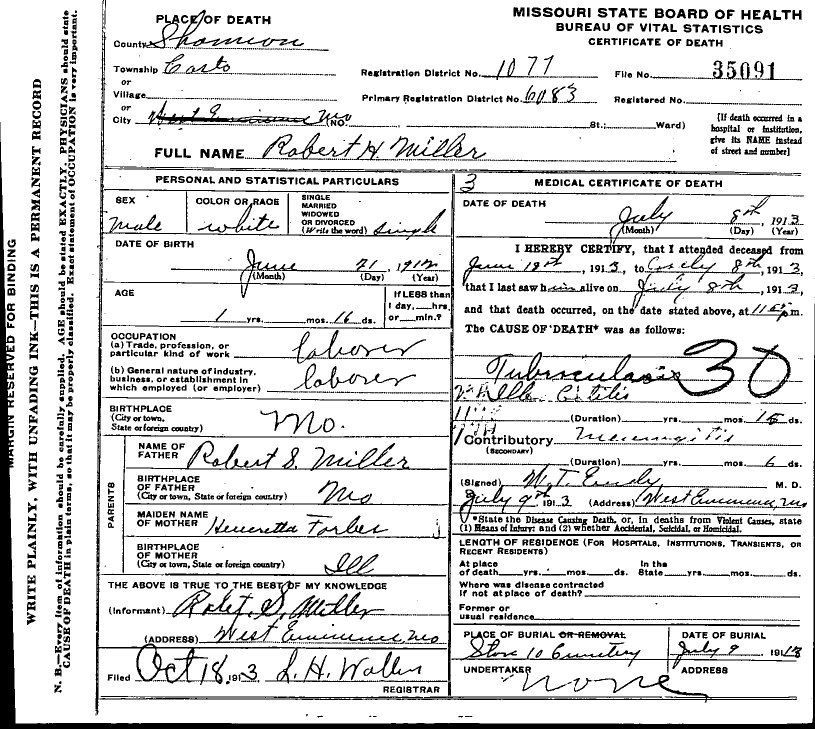 MISSOURI STATE BOARD OF HEALTH
BUREAU OF VITAL STATISTICS
CERTIFICATE OF DEATH
PLACE OF DEATH
County Shannon
Township
or
Village
or
City West Eminence Mo (NO. St.; Ward)
Registration District No. 1077 File No. 35091
Primary Registration District No. 6083 Registered No.
[If death occurred in a hospital or institution, give its NAME instead of street and number]
FULL NAME Robert H. Miller
PERSONAL AND STATISTICAL PARTICULARS
SEX
male
COLOR OR RACE
white
SINGLE
MARRIED
WIDOWED
OR DIVORCED
(Write the word) single
DATE OF BIRTH
June 21, 1912
(Month) (Day) (Year)
AGE
1 yrs. mos. 16 ds.
If LESS than
1 day, hrs.
or min.?
OCCUPATION
(a) Trade, profession, or
particular kind of work laborer
(b) General nature of industry,
business, or establishment in
which employed (or employer) laborer
BIRTHPLACE
(City or town,
State or foreign country) Mo.
PARENTS
NAME OF
FATHER Robert S. Miller
BIRTHPLACE
OF FATHER
(City or town, State or foreign country) Mo
MAIDEN NAME
OF MOTHER Heneretta Forbes
BIRTHPLACE
OF MOTHER
(City or town, State or foreign country) Ill
THE ABOVE IS TRUE TO THE BEST OF MY KNOWLEDGE
(Informant) Robt. S. Miller
(ADDRESS) West Eminence, Mo
Filed Oct 18, 1913 L. H. Waller
REGISTRAR
3 MEDICAL CERTIFICATE OF DEATH
DATE OF DEATH
July 8th, 1913
(Month) (Day) (Year)
I HEREBY CERTIFY, that I attended deceased from
June 18th, 1913, to 8th, 1913,
that I last saw him alive on July 8th, 1913,
and that death occurred, on the date stated above, at m.
The CAUSE OF DEATH* was as follows:
30
Tuberculosis
(Duration) yrs. mos. 15 ds.
Contributory Meningitis
(SECONDARY)
(Duration) yrs. mos. 6 ds.
(Signed) W. T. Eudy M. D.
July 9th 1913 (Address) West Eminence, Mo
*State the Disease Causing Death, or, in deaths from Violent Causes, state
(1) Means of Injury; and (2) whether Accidental, Suicidal, or Homicidal.
LENGTH OF RESIDENCE (FOR HOSPITALS, INSTITUTIONS, TRANSIENTS, OR
RECENT RESIDENTS)
At place
of death yrs. mos. ds.
In the
State yrs. mos. ds.
Where was disease contracted
if not at place of death?
Former or
usual residence
PLACE OF BURIAL OR REMOVAL
Cemetery
DATE OF BURIAL
July 9 1913
UNDERTAKER
none
ADDRESS
MARGIN RESERVED FOR BINDING
WRITE PLAINLY, WITH UNFADING INK—THIS IS A PERMANENT RECORD
N. B.—Every item of information should be carefully supplied. AGE should be stated EXACTLY. PHYSICIANS should state
CAUSE OF DEATH in plain terms, so that it may be properly classified. Exact statement of OCCUPATION is very important.